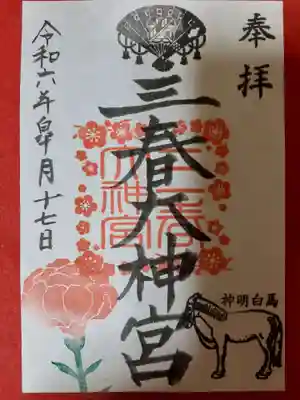 奉拝
三春大神宮
三春大神宮
令和六年皐月十七日
神明白馬